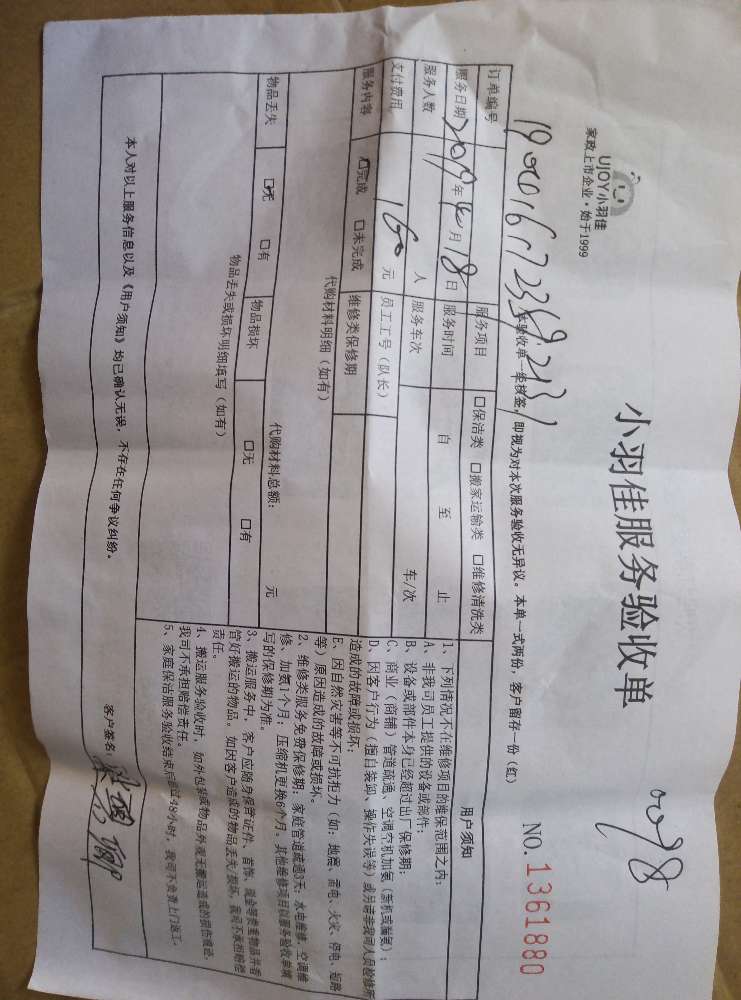 UJOY小羽佳
家政上市企业·始于1999
小羽佳服务验收单
0098
NO.1361880
验收单一经核签，即视为对本次服务验收无异议。本单一式两份，客户留存一份（红）
订单编号
服务项目 口保洁类 口搬家运输类 口维修清洗类
服务日期 2019年 月18日 服务时间 自 至 止
服务人数 人 服务车次 车/次
支付费用 160 元 员工工号（队长）
服务内容 口完成 口未完成 维修类保修期
代购材料明细（如有）
代购材料总额： 元
物品丢失 口无 口有 物品损坏 口无 口有
物品丢失或损坏明细填写（如有）
用户须知
1、下列情况不在维修项目的维保范围之内：
A、非我司员工提供的设备或部件；
B、设备或部件本身已经超过出厂保修期；
C、商业（商铺）管道疏通、空调空机加氨（新机或漏氨）；
D、因客户行为（擅自装卸、操作失误等）或另请非我司人员检修所
造成的故障或损坏；
E、因自然灾害等不可抗拒力（如：地震、雷电、火灾、停电、短路
等）原因造成的故障或损坏。
2、维修类服务免费保修期：家庭管道疏通3天，水电维修、空调维
修、加氨1个月；压缩机更换6个月；其他维修项目以服务验收单填
写的保修期为准。
3、搬运服务中，客户应随身保管证件、首饰、现金等贵重物品并看
管好搬运的物品。如因客户造成的物品丢失/损坏，我司不承担赔偿
责任。
4、搬运服务验收时，如外包装或物品外观无搬运造成的损伤痕迹，
我司不承担赔偿责任。
5、家庭保洁服务验收结束后超过48小时，我司不负责上门返工。
本人对以上服务信息以及《用户须知》均已确认无误，不存在任何争议纠纷。
客户签名：